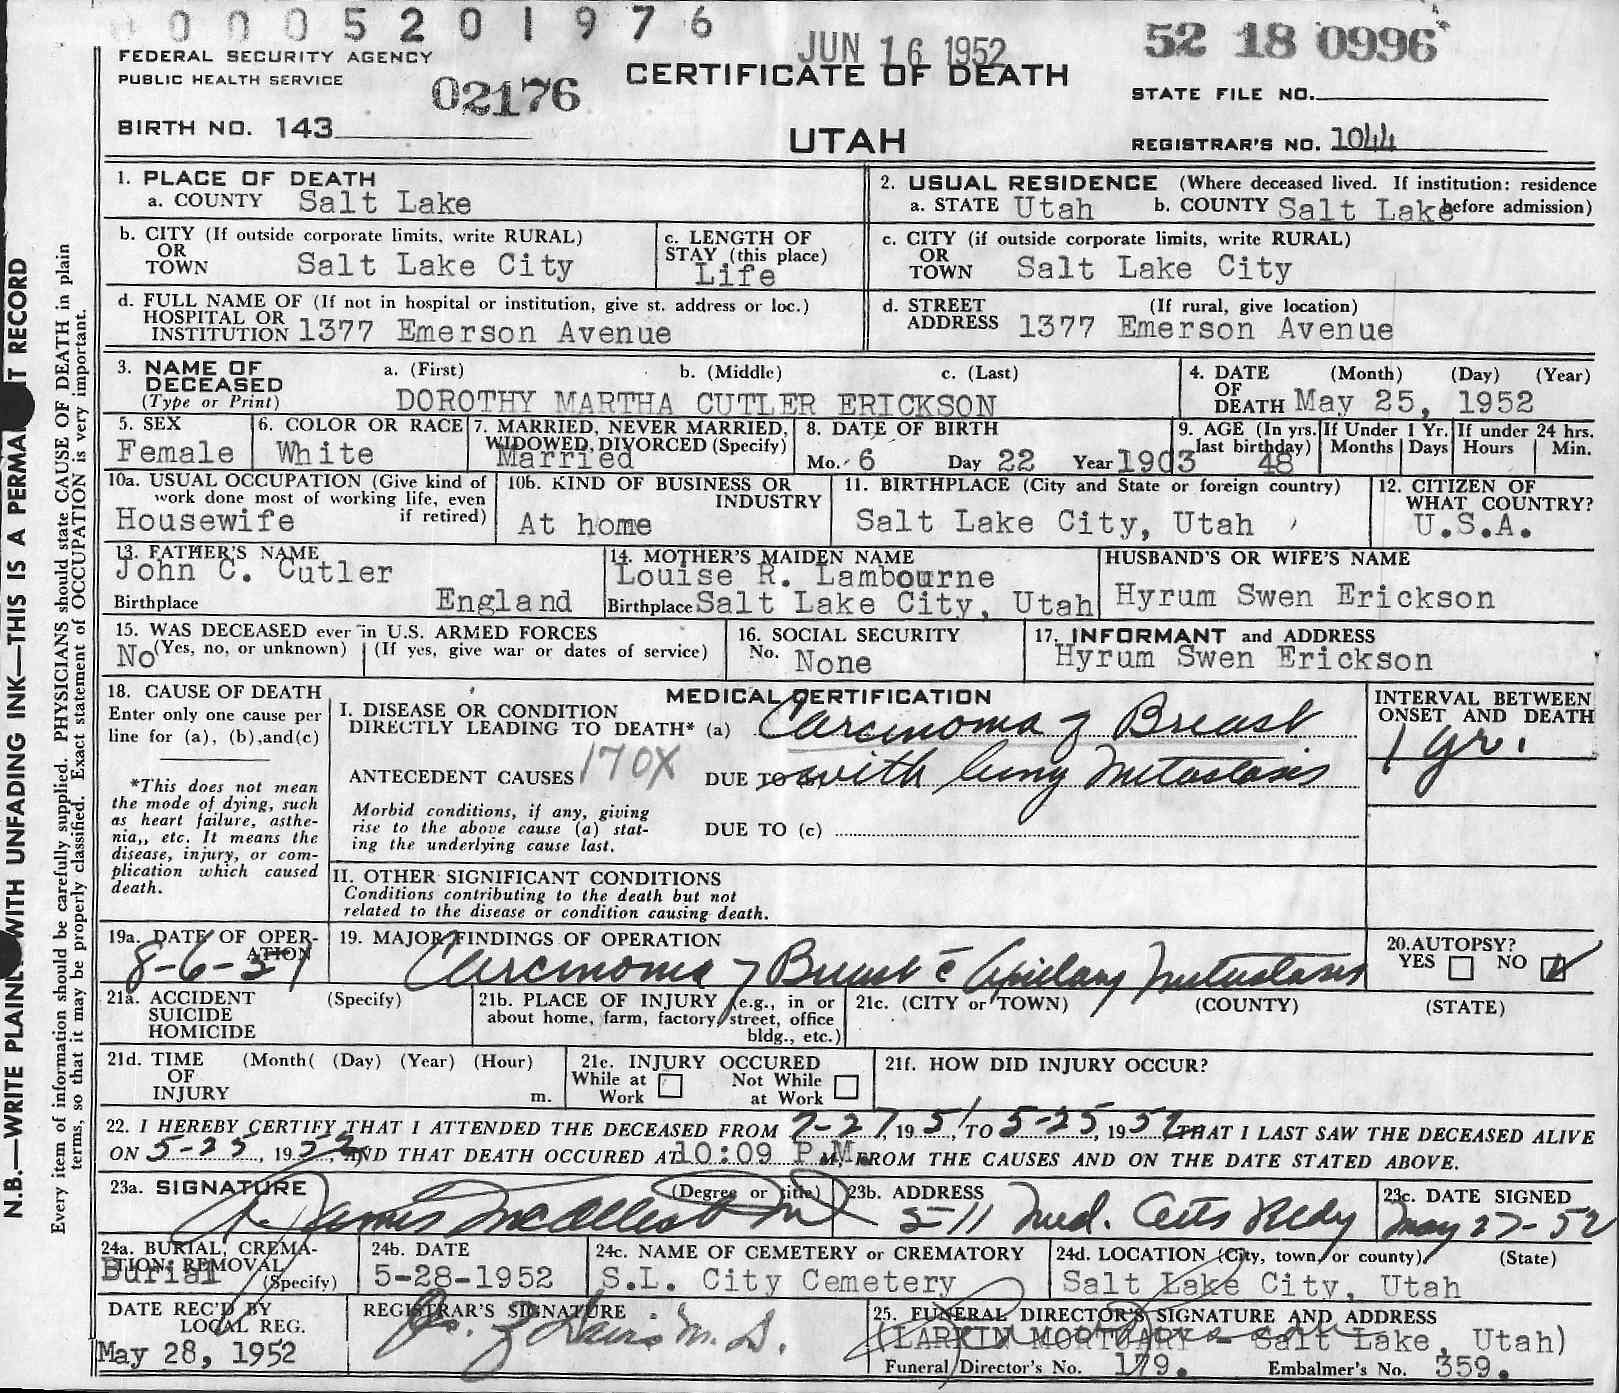 0 0 0 5 2 0 1 9 7 6
JUN 16 1952
52 18 0996
FEDERAL SECURITY AGENCY
PUBLIC HEALTH SERVICE
02176
CERTIFICATE OF DEATH
STATE FILE NO.
BIRTH NO. 143
UTAH
REGISTRAR'S NO. 1044
1. PLACE OF DEATH
a. COUNTY Salt Lake
2. USUAL RESIDENCE (Where deceased lived. If institution: residence
a. STATE Utah b. COUNTY Salt Lake before admission)
b. CITY (If outside corporate limits, write RURAL)
OR
TOWN Salt Lake City
c. LENGTH OF
STAY (this place)
Life
c. CITY (if outside corporate limits, write RURAL)
OR
TOWN Salt Lake City
d. FULL NAME OF (If not in hospital or institution, give st. address or loc.)
HOSPITAL OR
INSTITUTION 1377 Emerson Avenue
d. STREET (If rural, give location)
ADDRESS 1377 Emerson Avenue
3. NAME OF
DECEASED
(Type or Print)
a. (First) b. (Middle) c. (Last)
DOROTHY MARTHA CUTLER ERICKSON
4. DATE (Month) (Day) (Year)
OF
DEATH May 25, 1952
5. SEX
Female
6. COLOR OR RACE
White
7. MARRIED, NEVER MARRIED,
WIDOWED, DIVORCED (Specify)
Married
8. DATE OF BIRTH
Mo. 6 Day 22 Year 1903
9. AGE (In yrs.
last birthday)
48
If Under 1 Yr.
Months Days
If under 24 hrs.
Hours Min.
10a. USUAL OCCUPATION (Give kind of
work done most of working life, even
if retired)
Housewife
10b. KIND OF BUSINESS OR
INDUSTRY
At home
11. BIRTHPLACE (City and State or foreign country)
Salt Lake City, Utah
12. CITIZEN OF
WHAT COUNTRY?
U.S.A.
13. FATHER'S NAME
John C. Cutler
Birthplace England
14. MOTHER'S MAIDEN NAME
Louise R. Lambourne
Birthplace Salt Lake City, Utah
HUSBAND'S OR WIFE'S NAME
Hyrum Swen Erickson
15. WAS DECEASED ever in U.S. ARMED FORCES
No (Yes, no, or unknown) (If yes, give war or dates of service)
16. SOCIAL SECURITY
No. None
17. INFORMANT and ADDRESS
Hyrum Swen Erickson
18. CAUSE OF DEATH
Enter only one cause per
line for (a), (b),and(c)
*This does not mean
the mode of dying, such
as heart failure, asthe-
nia,, etc. It means the
disease, injury, or com-
plication which caused
death.
MEDICAL CERTIFICATION
I. DISEASE OR CONDITION
DIRECTLY LEADING TO DEATH* (a) Carcinoma of Breast
ANTECEDENT CAUSES 170X DUE TO with lung metastasis
Morbid conditions, if any, giving
rise to the above cause (a) stat-
ing the underlying cause last.
DUE TO (c)
INTERVAL BETWEEN
ONSET AND DEATH
1 yr.
II. OTHER SIGNIFICANT CONDITIONS
Conditions contributing to the death but not
related to the disease or condition causing death.
19a. DATE OF OPER-
ATION
8-6-51
19. MAJOR FINDINGS OF OPERATION
Carcinoma of Breast c̄ Axillary metastasis
20. AUTOPSY?
YES NO
21a. ACCIDENT (Specify)
SUICIDE
HOMICIDE
21b. PLACE OF INJURY (e.g., in or
about home, farm, factory, street, office
bldg., etc.)
21c. (CITY or TOWN) (COUNTY) (STATE)
21d. TIME (Month( (Day) (Year) (Hour)
OF
INJURY m.
21e. INJURY OCCURED
While at Work Not While at Work
21f. HOW DID INJURY OCCUR?
22. I HEREBY CERTIFY THAT I ATTENDED THE DECEASED FROM 7-27, 1951, TO 5-25, 1952, THAT I LAST SAW THE DECEASED ALIVE
ON 5-25, 1952, AND THAT DEATH OCCURED AT 10:09 P.M. FROM THE CAUSES AND ON THE DATE STATED ABOVE.
23a. SIGNATURE (Degree or title)
James
23b. ADDRESS
511 Med. Arts Bldg
23c. DATE SIGNED
May 27-52
24a. BURIAL, CREMA-
TION, REMOVAL
(Specify)
Burial
24b. DATE
5-28-1952
24c. NAME OF CEMETERY or CREMATORY
S.L. City Cemetery
24d. LOCATION (City, town, or county) (State)
Salt Lake City, Utah
DATE REC'D BY
LOCAL REG.
May 28, 1952
REGISTRAR'S SIGNATURE
M.D.
25. FUNERAL DIRECTOR'S SIGNATURE AND ADDRESS
(LARKIN MORTUARY - Salt Lake, Utah)
Funeral Director's No. 179. Embalmer's No. 359.
N.B.—WRITE PLAINL WITH UNFADING INK—THIS IS A PERMA T RECORD
Every item of information should be carefully supplied. PHYSICIANS should state CAUSE OF DEATH in plain
terms, so that it may be properly classified. Exact statement of OCCUPATION is very important.